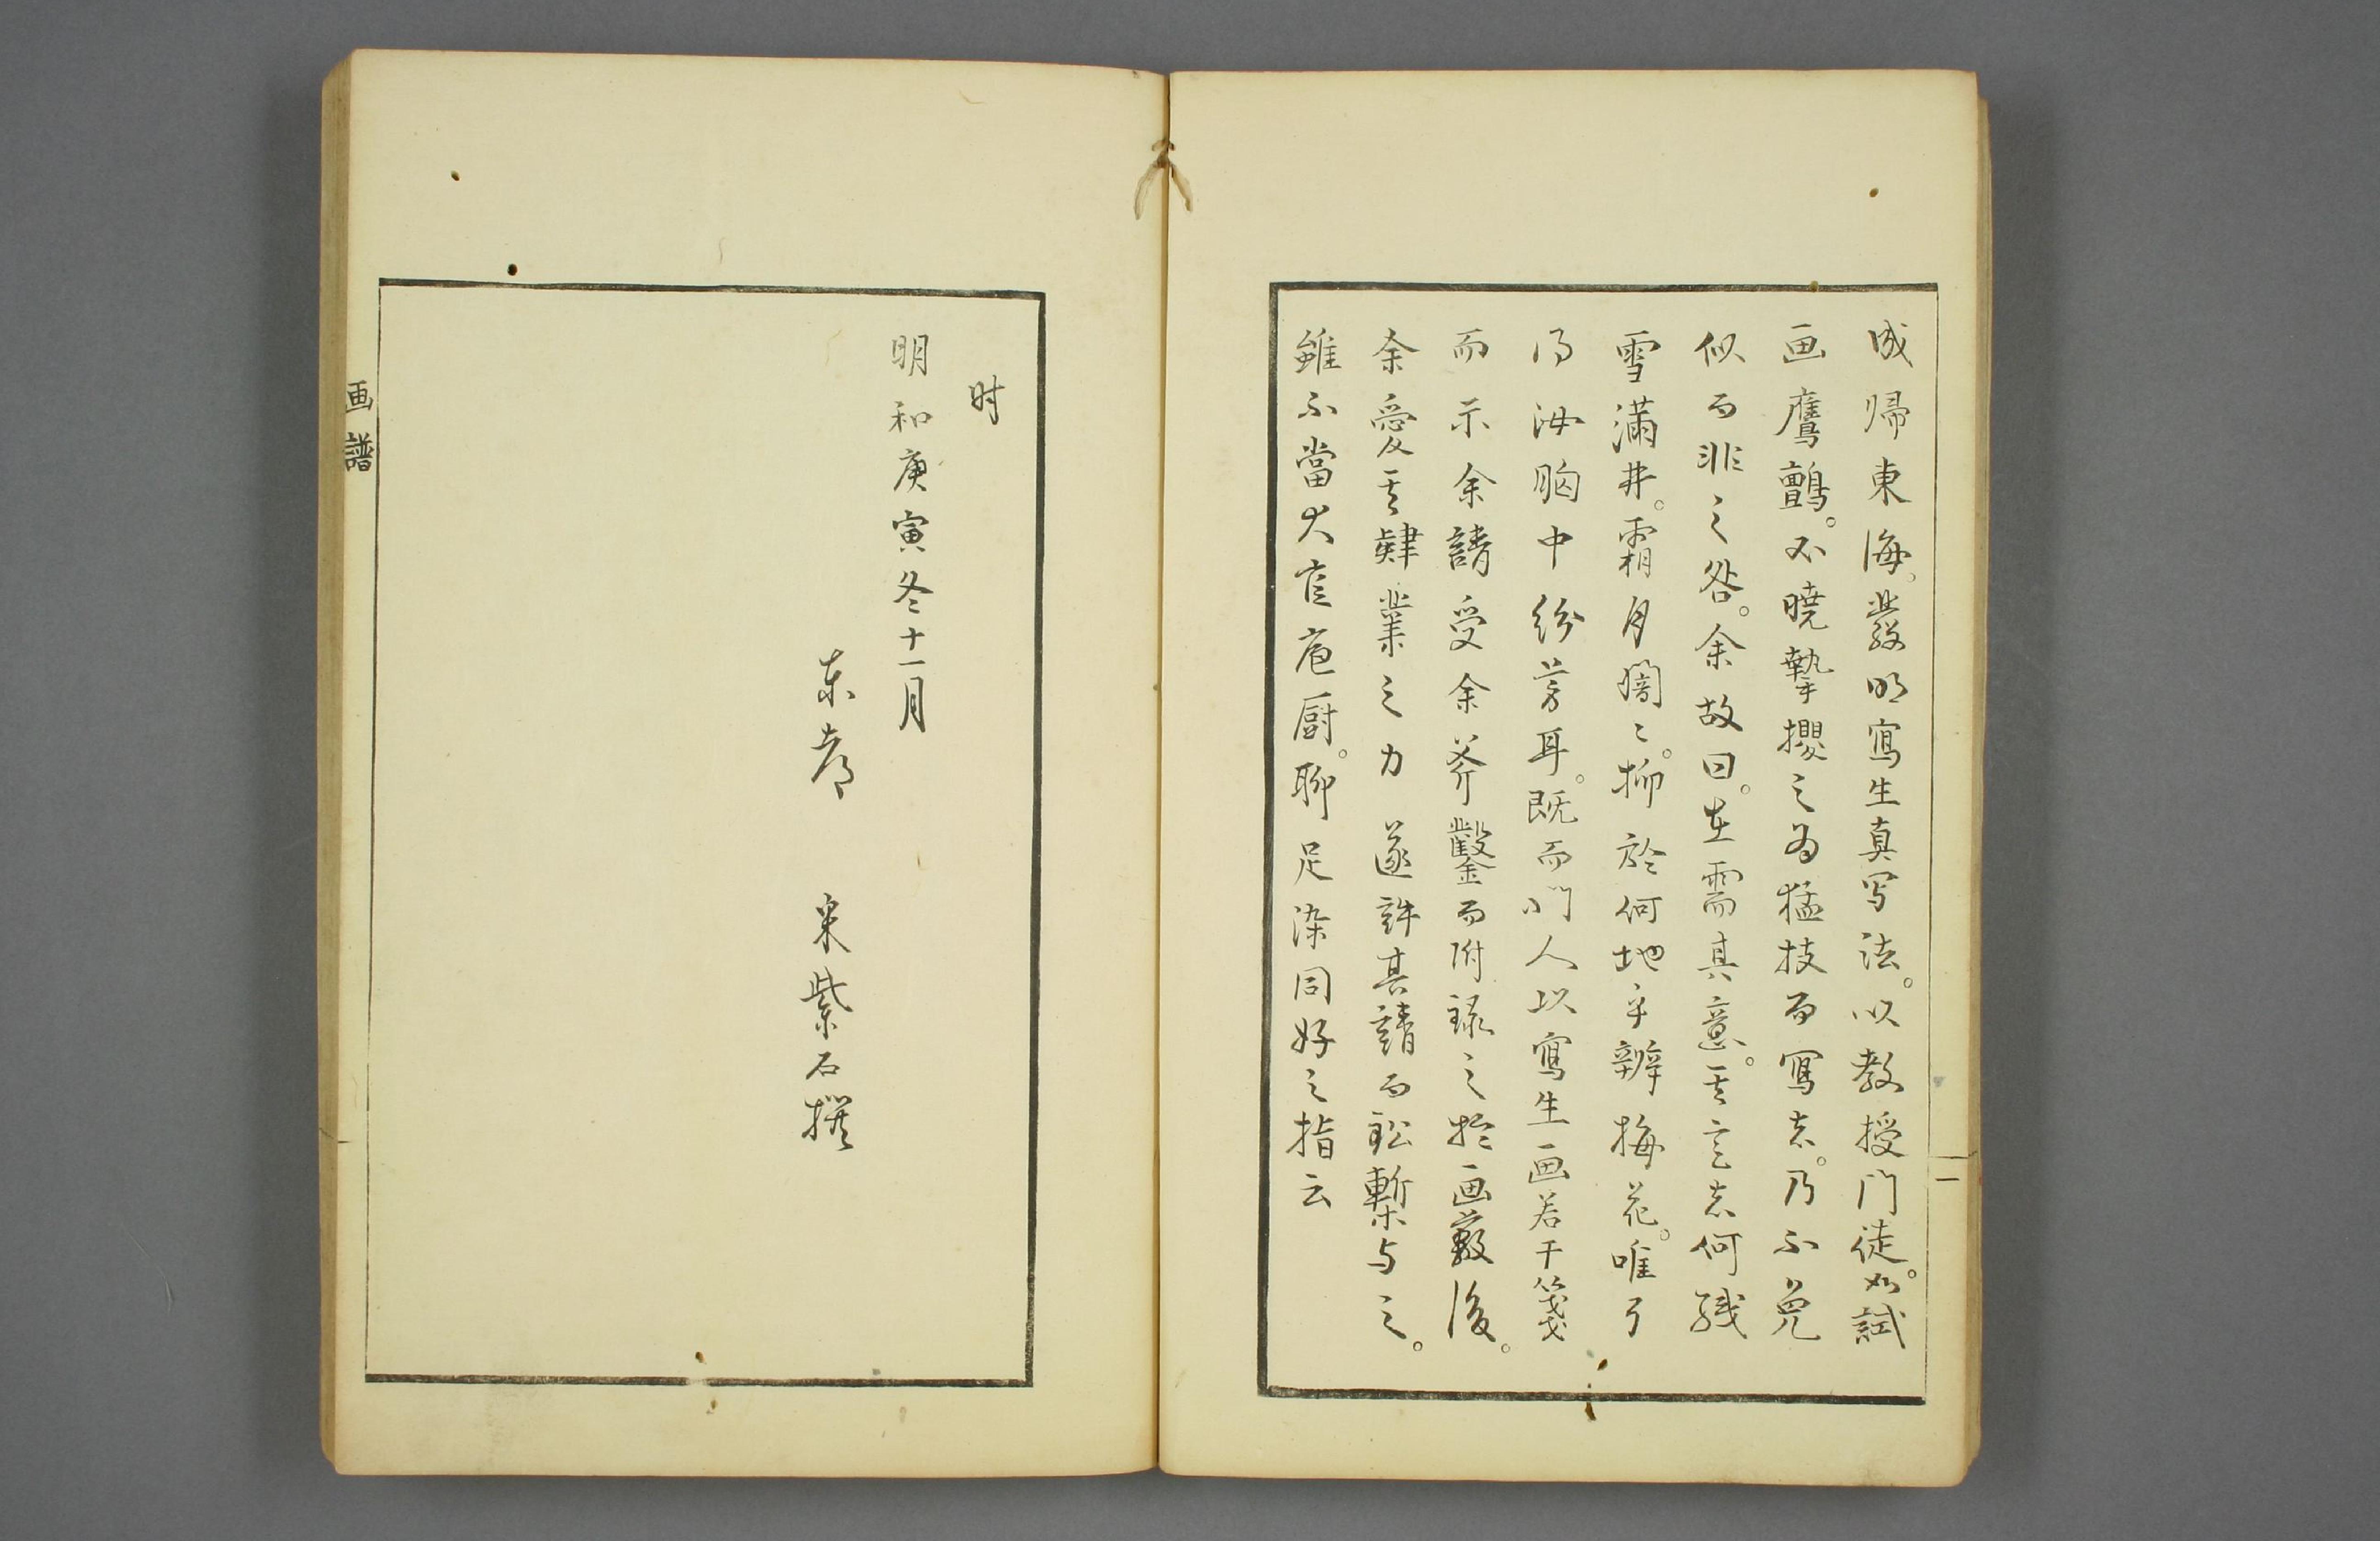 成帰東海。發明寫生真写法。以教授門徒。如試
画鷹鸇。不曉摯攫之為猛技而寫者。乃不免
似而非之咎。余故曰。在需而其意。其言者何殘
雪滿井。霜月闇〻。抑於何地乎辨梅花。唯了
得汝胸中紛芳耳。既而門人以寫生画若干箋
而示余請受余斧鑿而附録之於画藪後。
余愛其肄業之力遂許其請而訟槧与之。
雖不當大官庖厨。聊足染同好之指云
一
时
明和庚寅冬十一月
東都 宋紫石撰
画譜